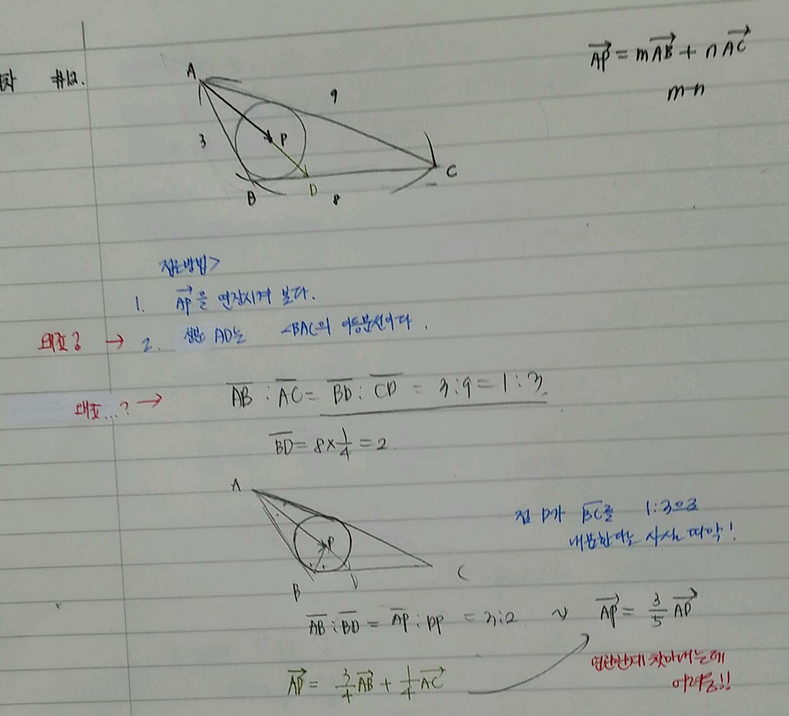 #12.
A
9
3
P
B
D
8
C
AP = mAB + nAC
m-n
접근방법>
1. AP을 연장시켜 본다.
왜죠? → 2. 선분 AD는 ∠BAC의 이등분선이다.
왜죠...? → AB : AC = BD : CD = 3:9 = 1:3
BD = 8×1/4 = 2
A
P
B
C
점 D가 BC를 1:3으로
내분한다는 사실 파악!
AB : BD = AP : DP = 3:2 ~ AP = 3/5 AD
AD = 3/4 AB + 1/4 AC
찾아내는데
어려움!!